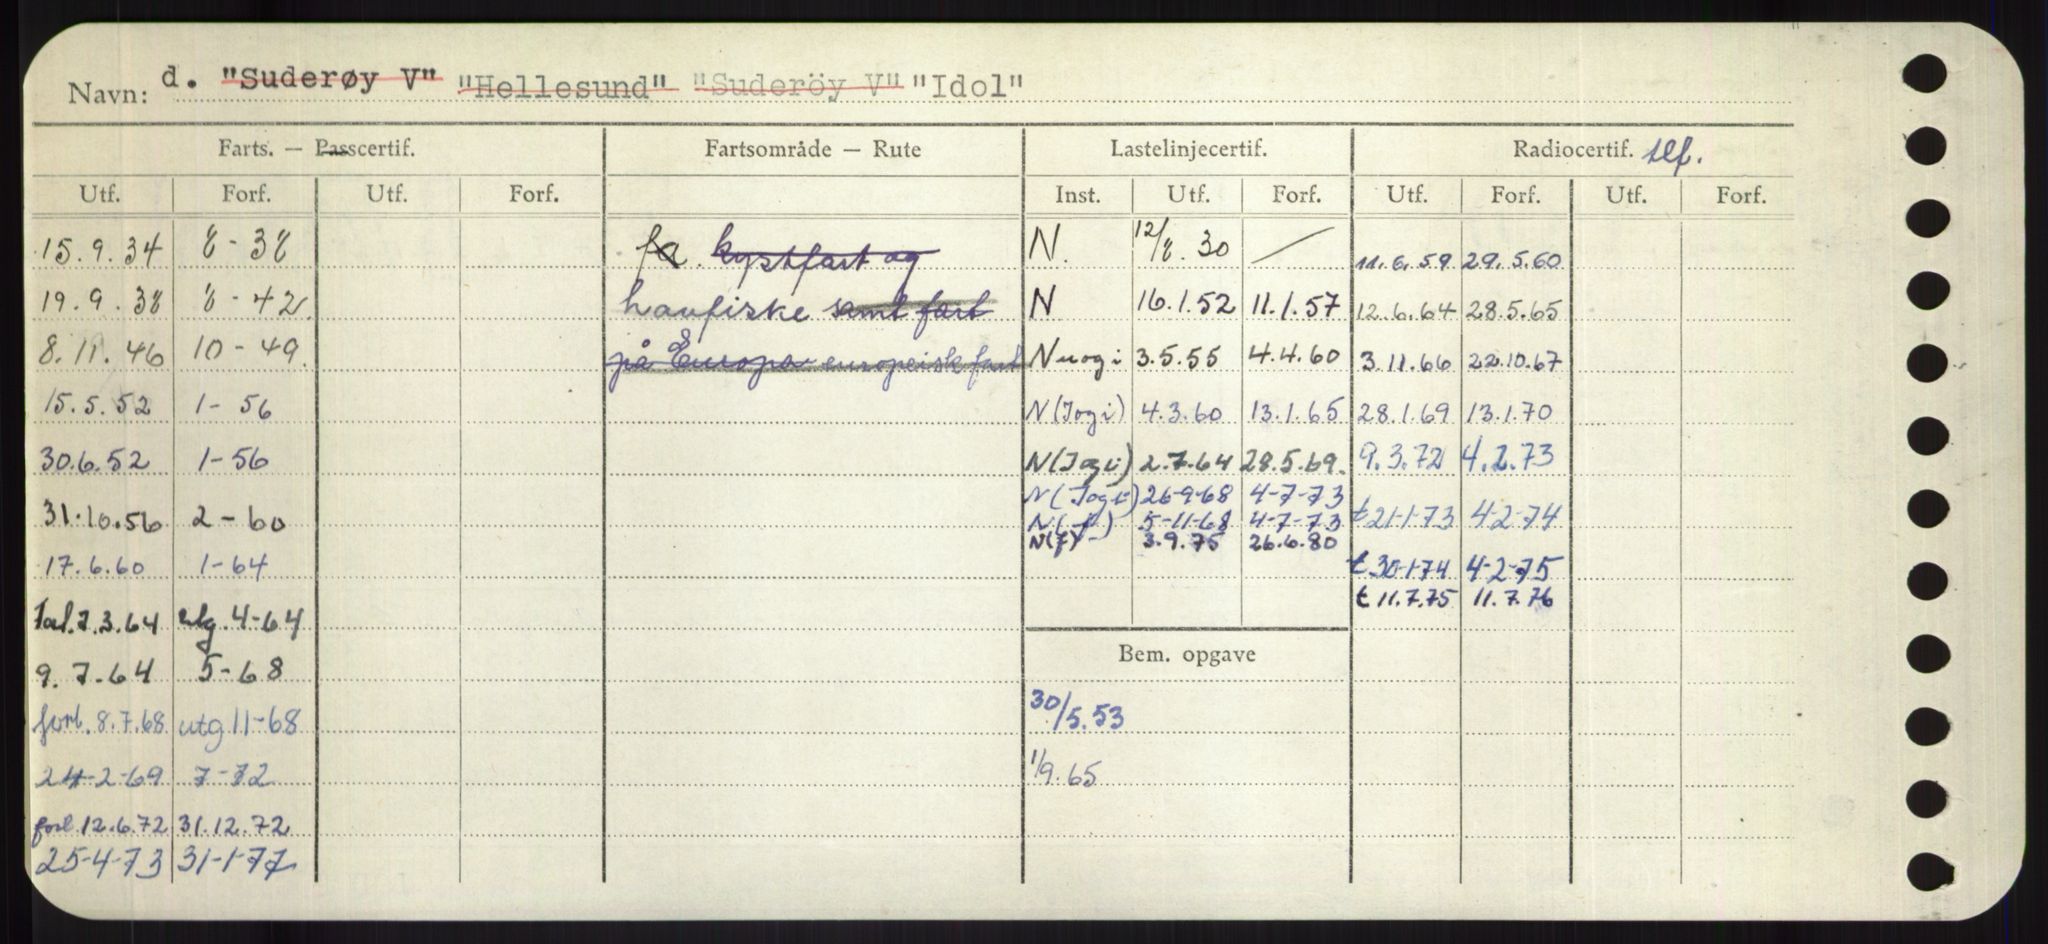 Navn: d. "Suderøy V" "Hellesund" "Suderöy V" "Idol"
Farts. — Passcertif. Fartsområde — Rute Lastelinjecertif. Radiocertif. tlf.
Utf. Forf. Utf. Forf. Inst. Utf. Forf. Utf. Forf. Utf. Forf.
15.9.34 8-38 kystfart og N. 12/8.30 / 11.6.59 29.5.60
19.9.38 8-42 havfiske samt fart N 16.1.52 11.1.57 12.6.64 28.5.65
8.11.46 10-49 på Europa europeisk fart N 3.5.55 4.4.60 3.11.66 22.10.67
15.5.52 1-56 N(Jogi) 4.3.60 13.1.65 28.1.69 13.1.70
30.6.52 1-56 N(Jogi) 2.7.64 28.5.69. 9.3.72 4.2.73
N(Jogi) 26-9-68 4-7-73
31.10.56 2-60 N(f) 5-11-68 4-7-73 t 21-1-73 4-2-74
N(f)- 3.9.75 26.6.80
17.6.60 1-64 t 30-1-74 4-2-75
t 11.7.75 11.7.76
7.3.64 utg. 4-64
Bem. opgave
9.7-64 5-68
forl. 8.7.68 utg 11-68 30/5.53
24-2-69 7-72 1/9.65
forl. 12.6.72 31.12.72
25-4-73 31-1-77